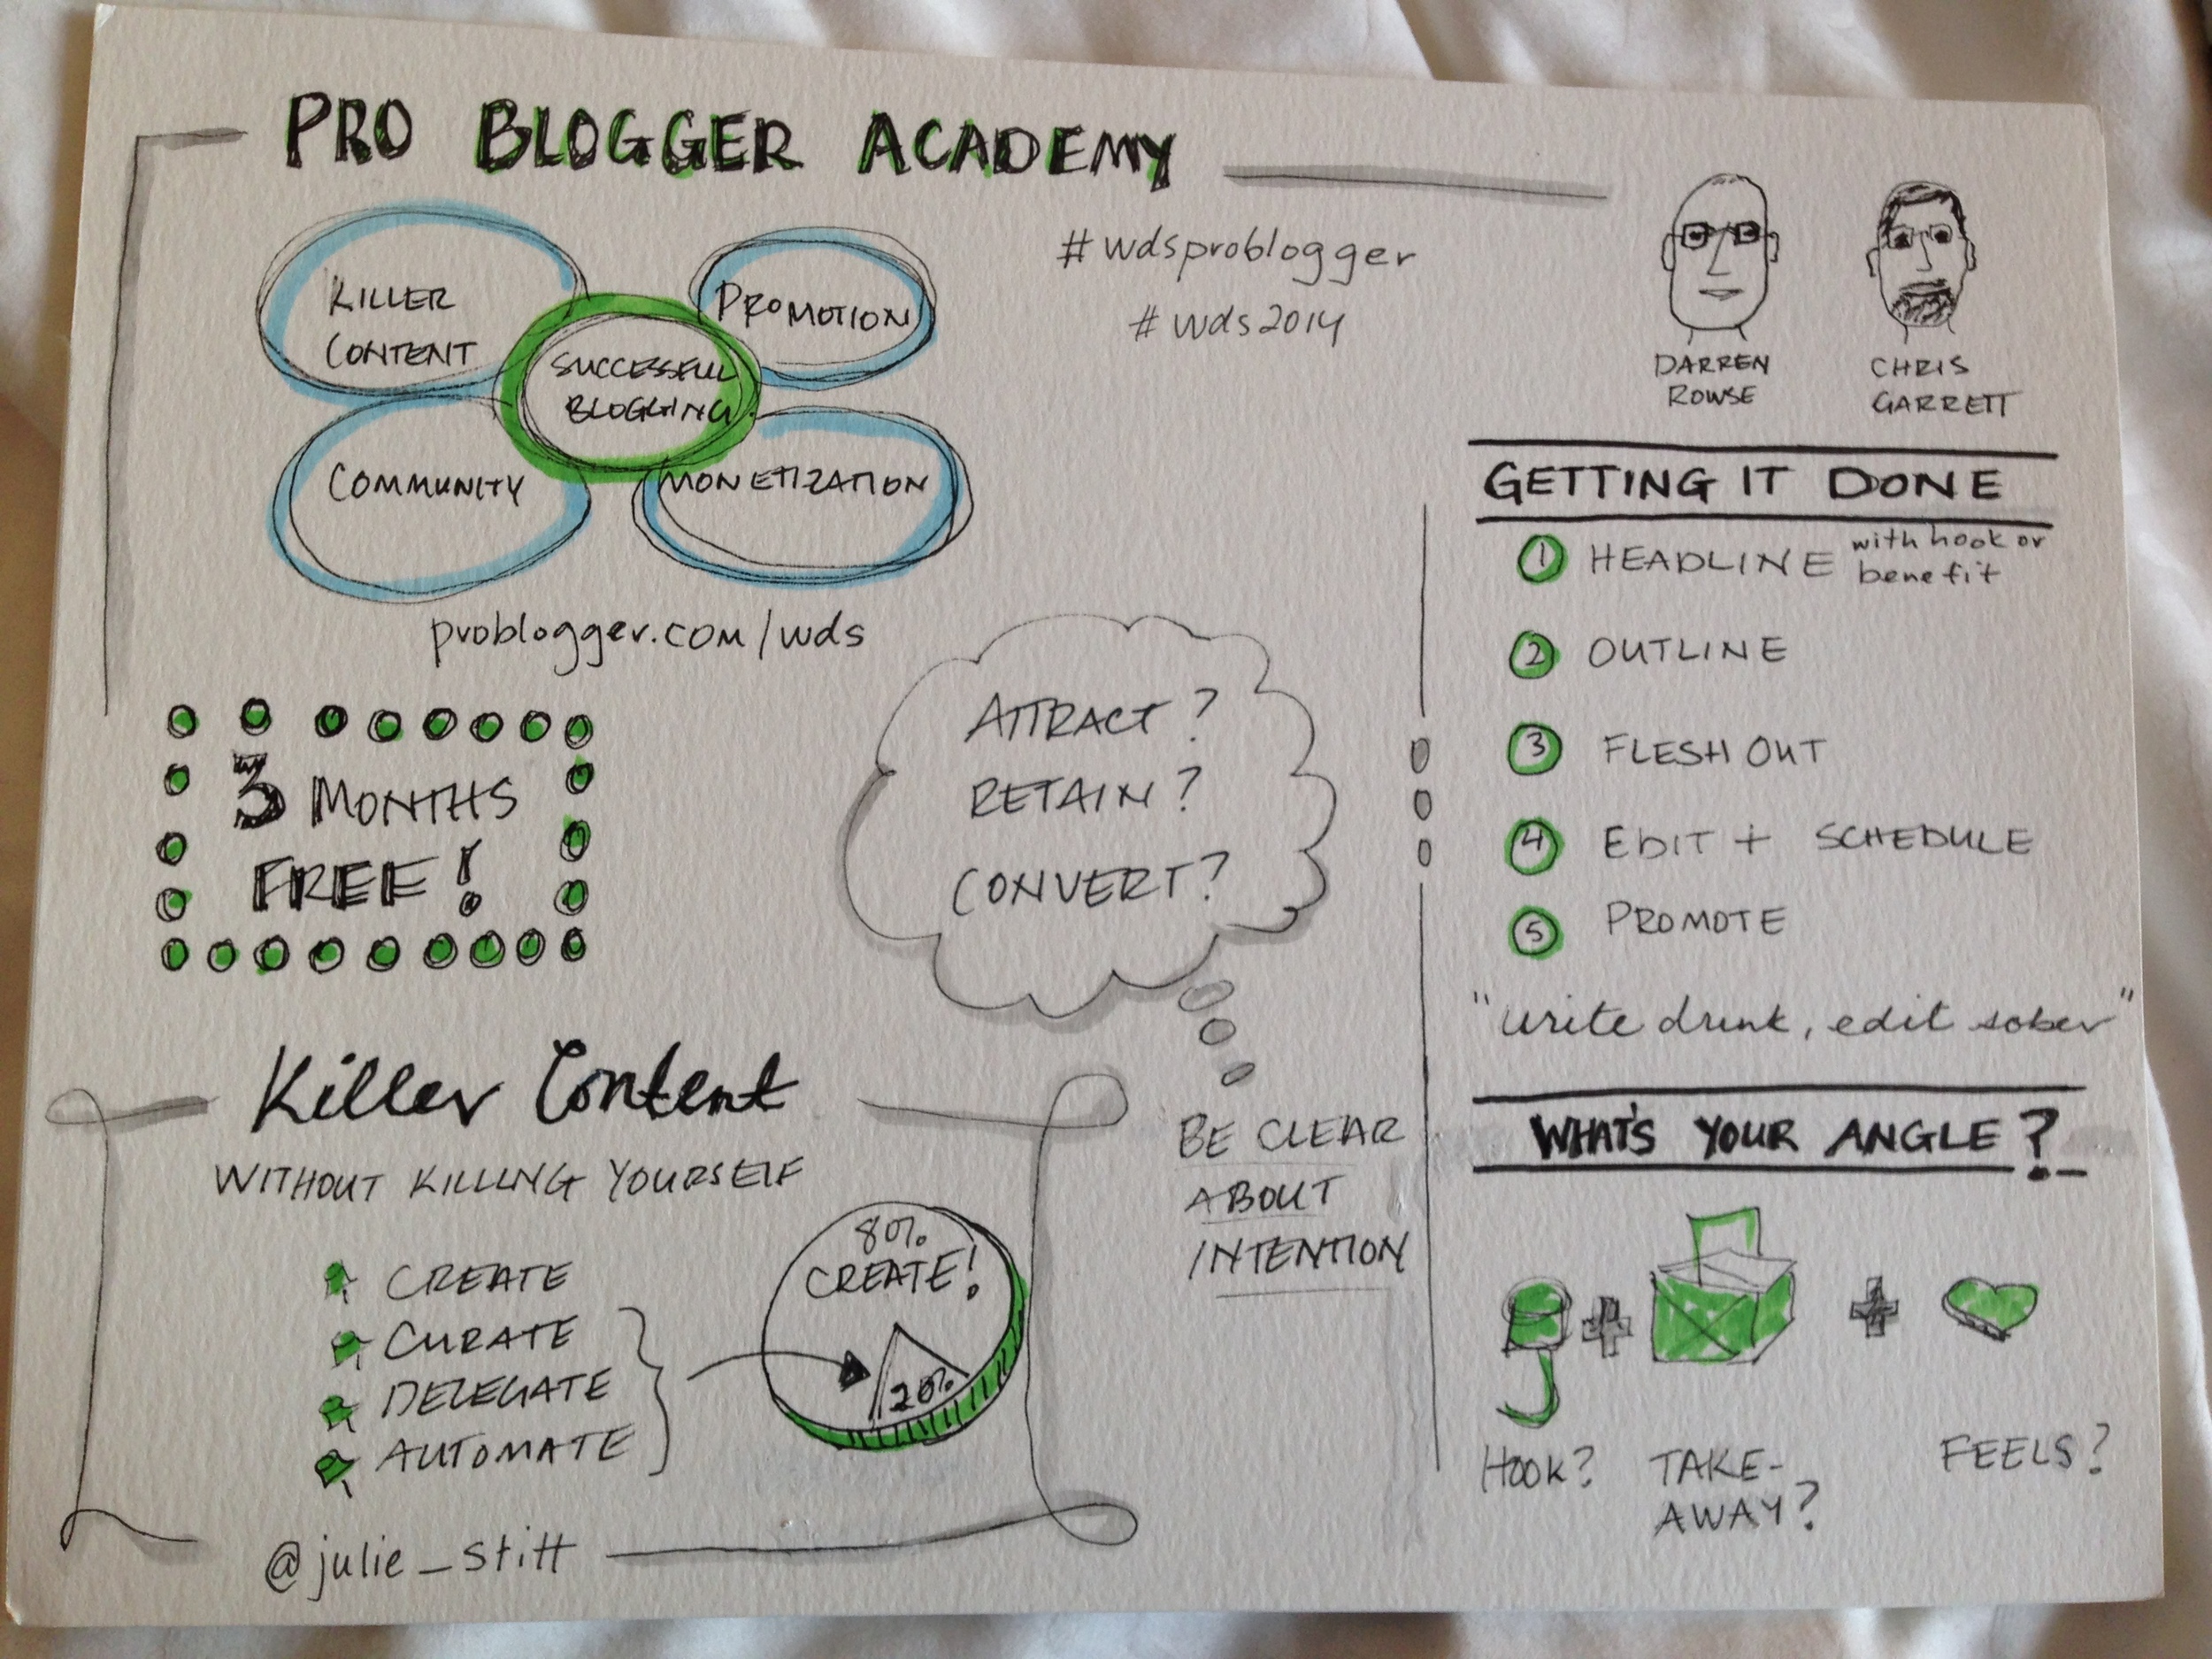 PRO BLOGGER ACADEMY
KILLER
CONTENT
PROMOTION
SUCCESSFUL
BLOGGING
COMMUNITY
MONETIZATION
problogger.com/wds
#wdsproblogger
#wds2014
DARREN
ROWSE
CHRIS
GARRETT
3 MONTHS
FREE!
ATTRACT?
RETAIN?
CONVERT?
BE CLEAR
ABOUT
INTENTION
Killer Content
WITHOUT KILLING YOURSELF
CREATE
CURATE
DELEGATE
AUTOMATE
80%
CREATE!
20%
@julie_stitt
GETTING IT DONE
1 HEADLINE with hook or
benefit
2 OUTLINE
3 FLESH OUT
4 EDIT + SCHEDULE
5 PROMOTE
"write drunk, edit sober"
WHAT'S YOUR ANGLE?
+ +
HOOK?
TAKE-
AWAY?
FEELS?